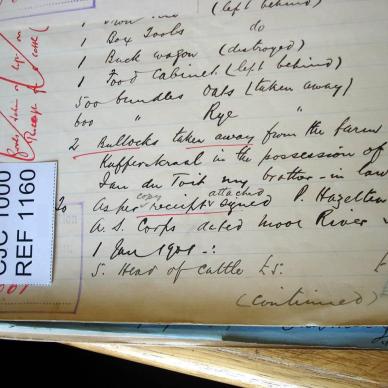 1 Iron
(left behind)
1 Box Tools do
1 Buck wagon (destroyed)
1 Food Cabinet (left behind)
500 bundles Oats (taken away)
600 " Rye "
2 Bullocks taken away from the farm
Kafferskraal in the possession of
Jan du Toit my brother-in law
As per copy receipts attached signed P. Hazelton
A. S. Corps dated Mooi River
1 Jan 1901 -:
5. Head of cattle £5.
(continued)
CJC 1000
REF 1160